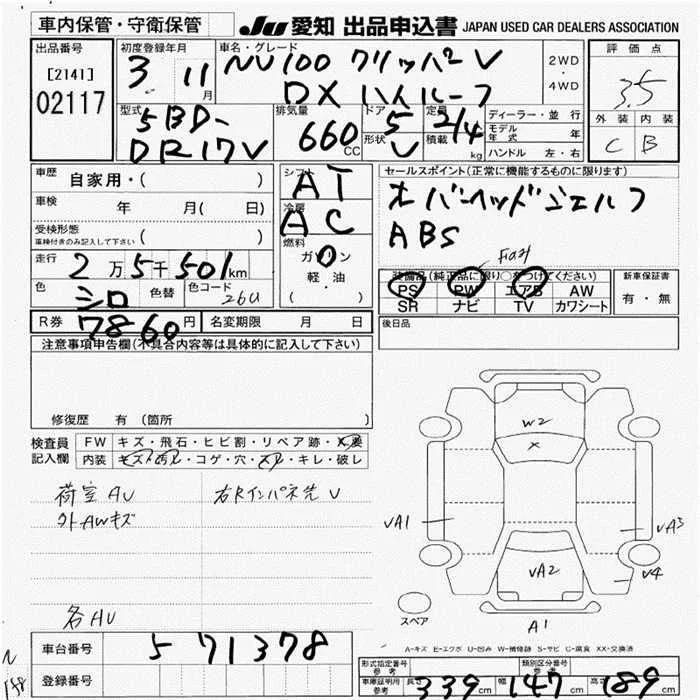 車内保管・守衛保管
JU 愛知 出品申込書 JAPAN USED CAR DEALERS ASSOCIATION
出品番号
[2141]
02117
初度登録年月
3 11月
車名・グレード
NV100 クリッパー V
DX ハイルーフ
2WD
・
4WD
評価点
3.5
外装 内装
C B
型式
5BD-
DR17V
排気量
660 CC
ドア 5
形状 V
定員 2/4
積載 kg
ディーラー・並行
モデル年式 年
ハンドル 左・右
車歴 自家用・( )
車検 年 月( 日)
受検形態
車検付きのみ記入して下さい ( )
走行 2万5千501km
色 シロ 色替 色コード 26U
R券 7860円 名変期限 月 日
シフト AT
冷房 AC
燃料
ガソリン
軽・油
( )
セールスポイント(正常に機能するものに限ります)
オーバーヘッドシェルフ
ABS
装備品(純正品に限り○をつけてください)
PS PW エアB AW
SR ナビ TV カワシート
新車保証書
有・無
後日品
注意事項申告欄(不具合内容等は具体的に記入して下さい)
修復歴 有(箇所 )
検査員記入欄
FW キズ・飛石・ヒビ割・リペア跡・X要
内装 キズ・汚レ・コゲ・穴・スレ・キレ・破レ
荷室AU 右Rインパネ先V
外AWキズ
各AU
W2
X
VA1
VA3
VA2
V4
スペア
A1
A-キズ E-エクボ U-凹み W-補修跡 S-サビ C-腐食 XX-交換済
車台番号 571378
登録番号
形式指定番号 参考
類別区分番号 参考
車庫証明用 参考 長さ 339cm 幅 147cm 高さ 189cm